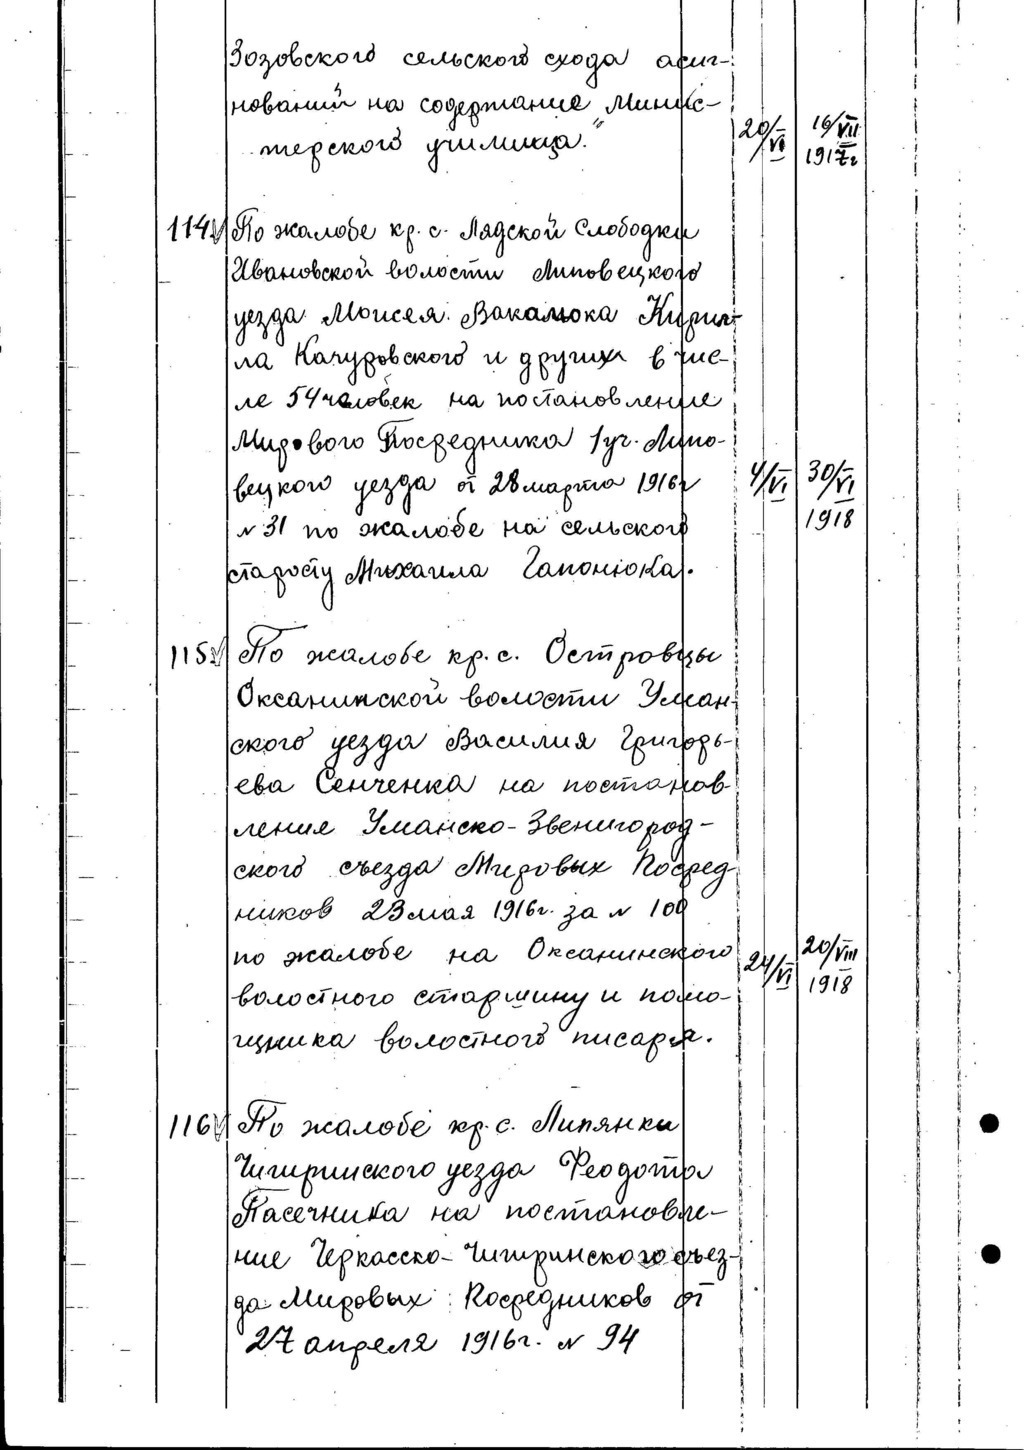 Зозовского сельского схода асиг-
нований на содержание „Минис-
терского училища."
20/VI
16/VII
1917г
114. По жалобе кр. с. Лядской Слободки
Ивановской волости Липовецкого
уезда Моисея Вакалюка Кирил-
ла Качуровского и других в чис-
ле 54 человек на постановление
Мирового Посредника 1 уч. Липо-
вецкого уезда от 28 марта 1916г
N 31 по жалобе на сельского
старосту Михаила Гапонюка.
4/VI
30/VI
1918
115. По жалобе кр. с. Островцы
Оксанинской волости Уман-
ского уезда Василия Григорь-
ева Сенченка на постанов
ление Уманско-Звенигород-
ского съезда Мировых Посред
ников 23 мая 1916г. за N 100
по жалобе на Оксанинского
волостного старшину и помо-
щника волостного писаря.
24/VI
20/VIII
1918
116 По жалобе кр. с. Липянки
Чигиринского уезда Феодота
Пасечника на постановле-
ние Черкасско-Чигиринского съез-
да Мировых Посредников от
27 апреля 1916г. N 94